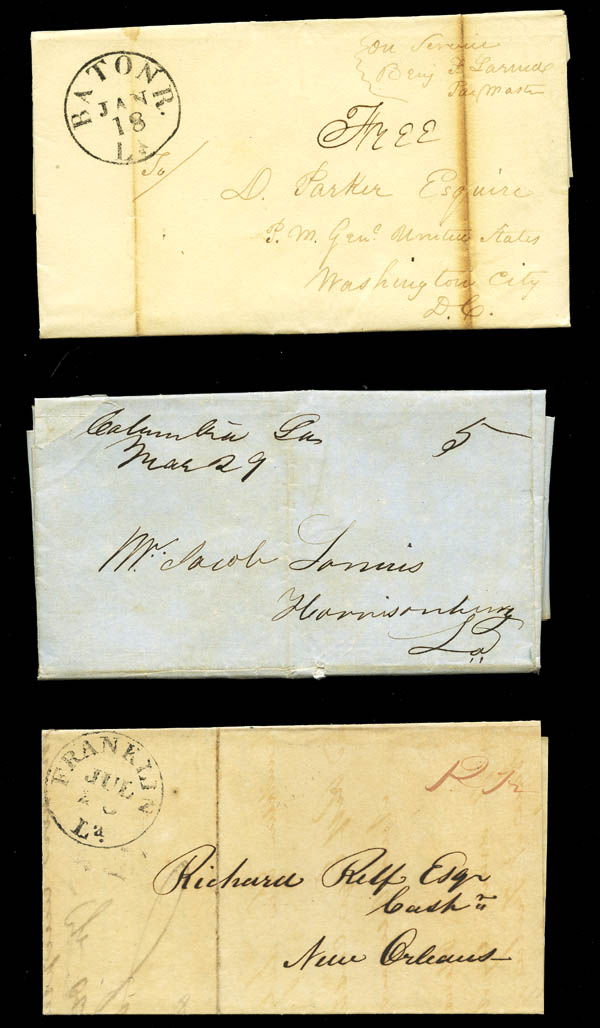 BATON R.
JAN
18
La
On Service
Benj F. Larned
Pay Master
Free
To
D. Parker Esquire
P. M. Genl. United States
Washington City
D. C.
Columbia La
Mar 29
5
Mr. Jacob
Harrisonburg
La
FRANKLIN
JUL
La.
Richard Relf Esqr
Cashr
New Orleans